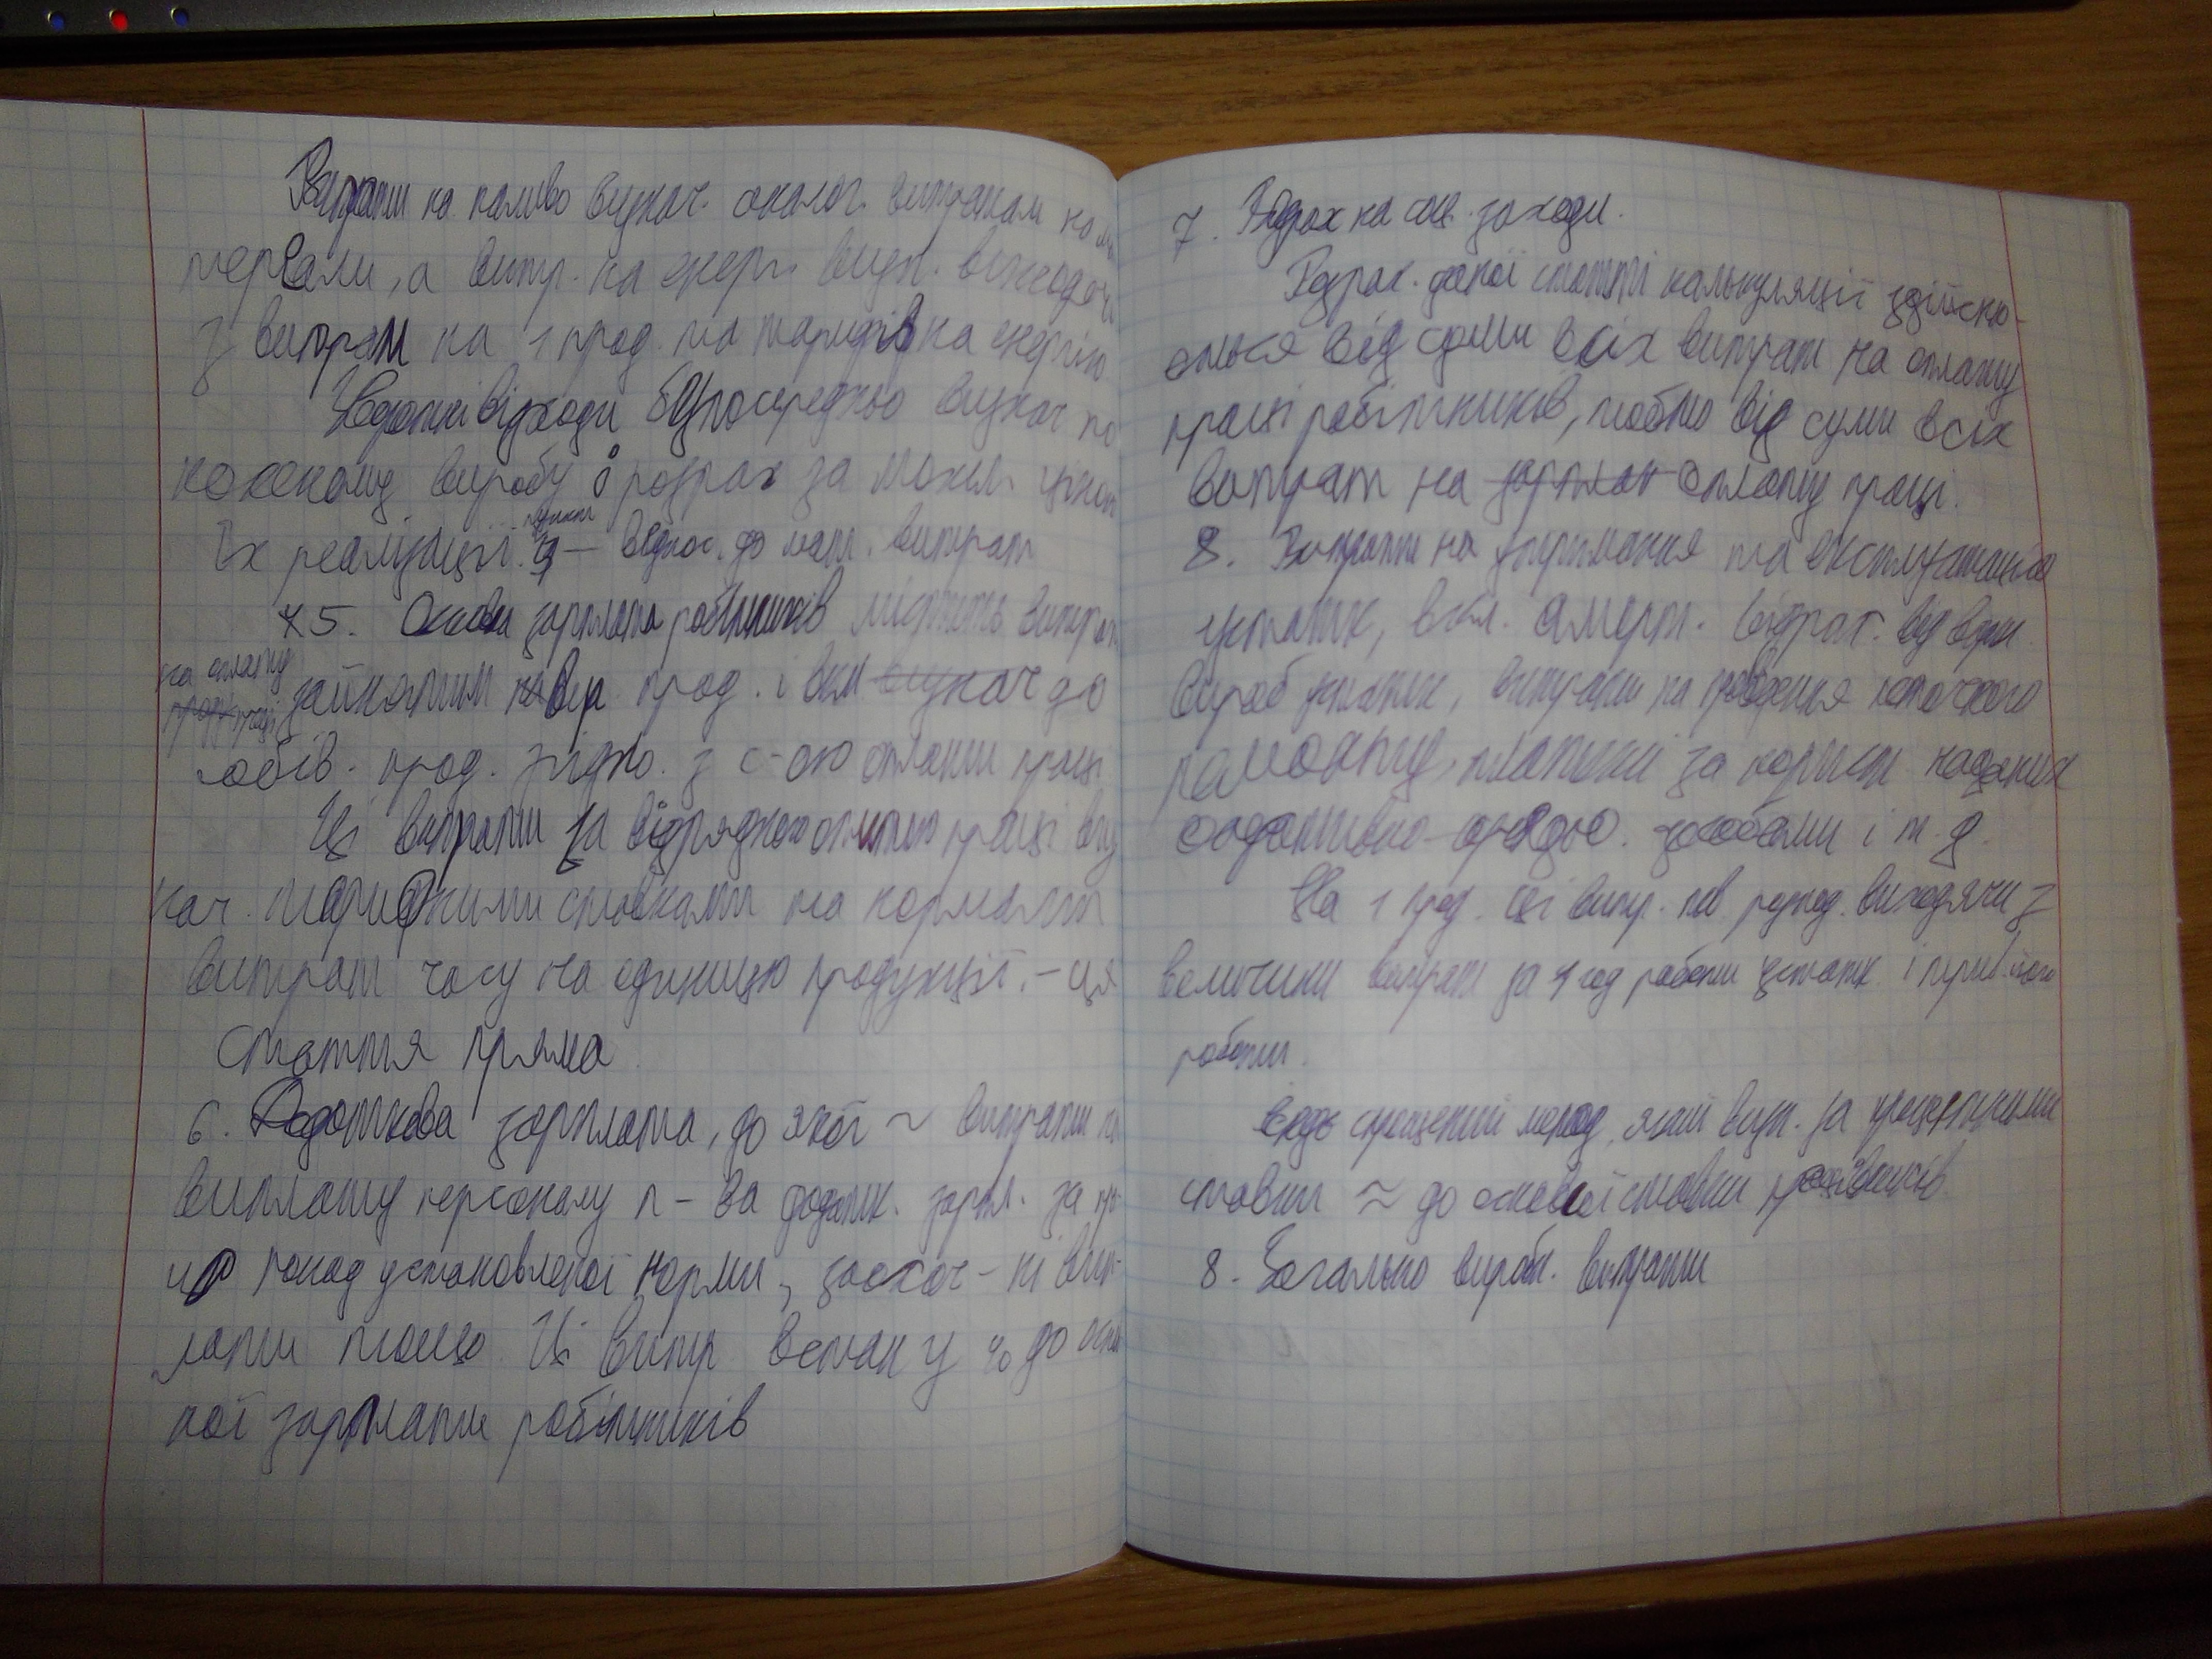 Витрати на паливо визнач. аналог. витратам на ма
теріали, а витр. на енерг. визн. виходячи
з витрат на 1 прод. та тарифів на енергію
відходи безпосередньо визнач по
кожному виробу і розрах за можл. ціною
їх реалізації. пункт – віднос. до мат. витрат
5. Основна зарплата робітників містить витрати
на оплату праці зайнятим вир. прод. і
собів. прод. згідно. з с-ою оплати праці
Ці витрати за відрядною оплатою праці виз
нач. тарифними ставками та нормами
витрат часу на одиницю продукції. – ця
стаття пряма
6. Додаткова зарплата, до якої ~ витрати на
виплату персоналу п-ва додатк. зарпл. за пра
цю понад установлені норми, заохоч-ні вип-
лати тощо. Ці витр. встан у % до основ
ної зарплати робітників
7. Відрах на соц. заходи.
Розрах. даної статті калькуляції здійсню-
ється від суми всіх витрат на оплату
праці робітників, тобто від суми всіх
витрат на оплату праці.
8. Витрати на утримання та експлуатацію
устатк, вкл. аморт. відрах. від варт.
вироб устатк, витрати на проведення поточного
ремонту, платежі за корист. наданих
засобами і т.д.
На 1 прод. ці витр. розпод. виходячи з
величини витрат за 1 год роботи устатк. і трив. його
роботи.
спрощений метод, який визн. за процентними
ставки ≈ до основної ставки
8. Загально вироб. витрати